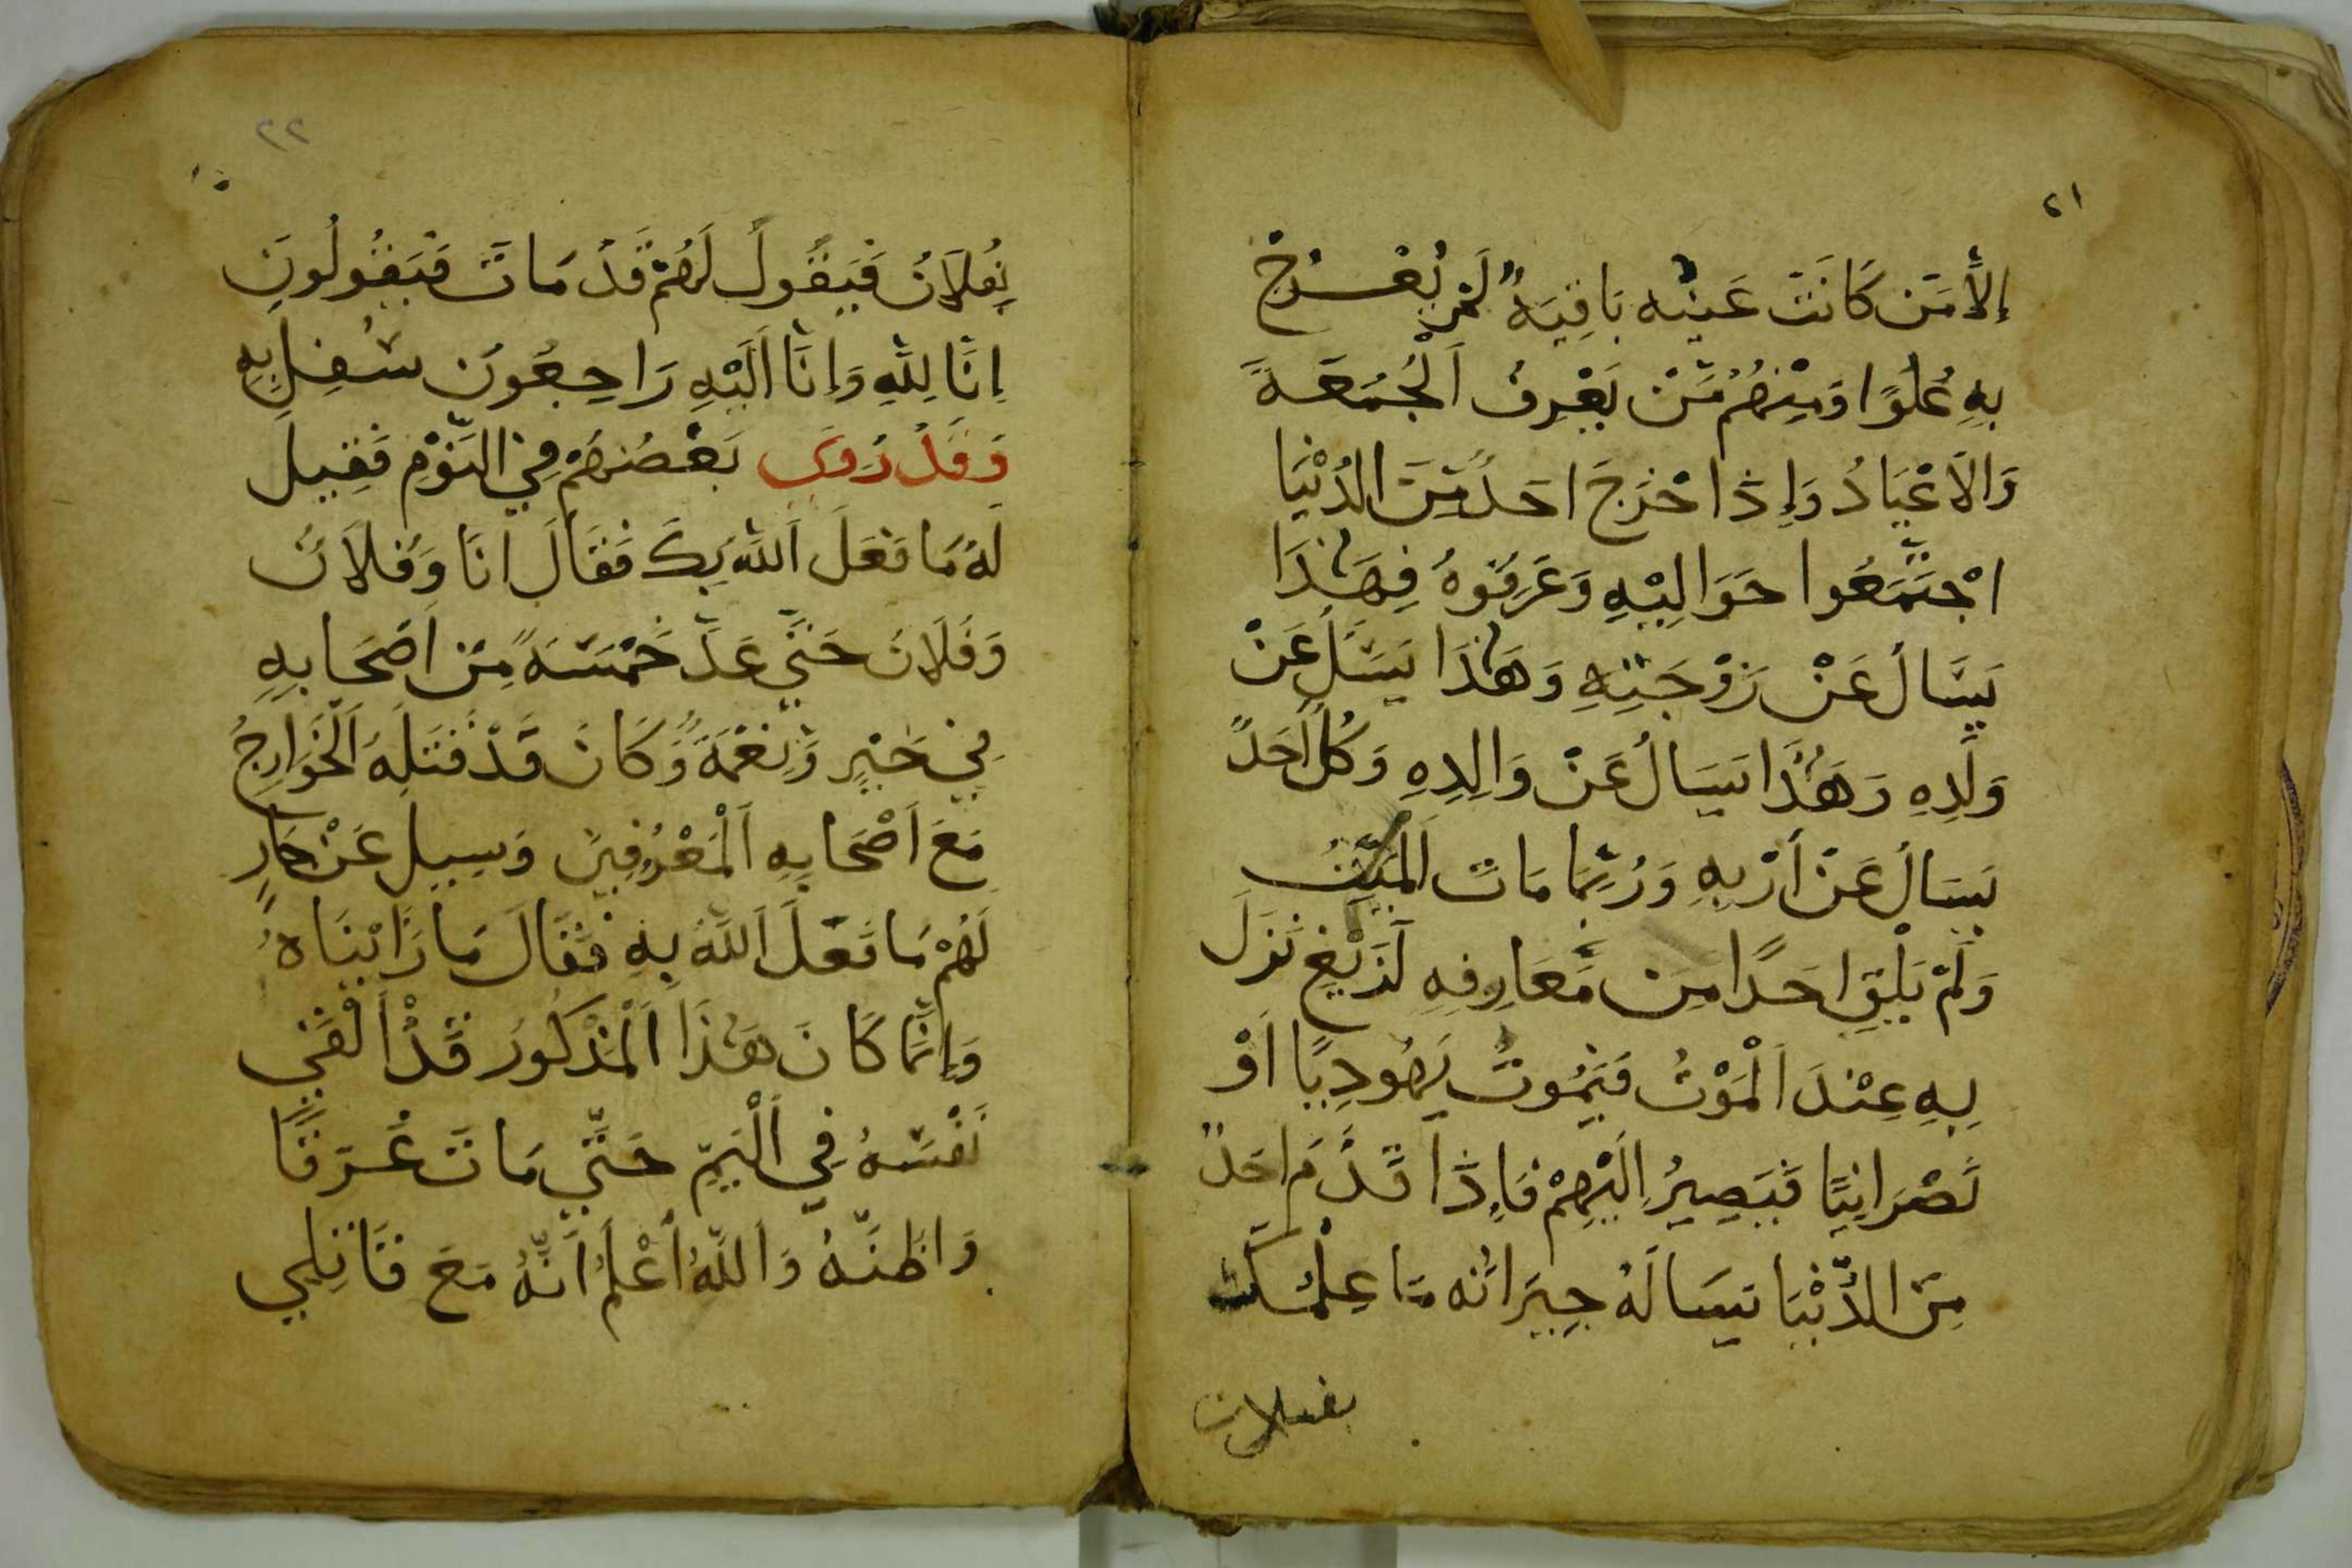 ٢١
إِلَّا مَنْ كَانَتْ عَيْنُه بَاقِيَةً لَمْ يُعْرَجْ
بِهِ عُلُوًّا وَمِنْهُمْ مَنْ يَعْرِفُ الْجُمُعَةَ
وَالْاَعْيَادُ وَإِذَا خَرَجَ احَدٌ مِنَ الدُّنْيَا
اجْتَمَعُوا حَوَالِيْهِ وَعَرِفُوهُ فِهَٰذَا
يَسَّالُ عَنْ زَوْجَتِهِ وَهَٰذَا يَسَلُ عَنْ
وَلَدِهِ وَهَٰذَا يَسَالُ عَنْ وَالِدِهِ وَكُل اَحَدٌ
يَسَالُ عَنْ أَرْبِهِ وَرُبَّمَا مَاتَ الْمَيِّتُ
وَلَمْ يَلْقِ احَدًا مِنْ مَعَارِفِهِ لَزَيْغٍ نَزَلَ
بِهِ عِنْدَ الْمَوْتُ فَيَمُوتُ يَهُودِيًا اَوْ
نَصْرَانِيًا فَيَصِيرُ اِلَيْهِمْ فَاِذَا قَدَّمَ احَدٌ
مِنَ الدُّنْيَا يَسَالَهُ جِيرَانُه مَا عِلْمُكَ
بفلان
٢٢
بِفُلَانٍ فَيَقُولُ لَهُمْ قَدْ مَاتَ فَيَقُولُونَ
اِنَّا لِلّٰهِ وَاِنَّا اَلَيْهِ رَاجِعُونَ سُفِلَ بِهِ
وَقَدْ رُوِىَ بَعْضُهُمْ فِي النَّوْمِ فَقِيلَ
لَهُ مَا فَعَلَ اَللّٰهُ بِكَ فَقَالَ اَنَا وَفُلَانٌ
وَفُلَانٌ حَتَّي عَدَّ خَمْسَةً مِنْ اَصْحَابِهِ
فِي خَيْرٍ وَنِعْمَةٍ وَكَانَ قَدْ قَتَلَهُ الْخَوَارِجُ
مَعَ اَصْحَابِهِ اَلْمَعْرُوفِينَ وَسِيِلَ عَنْ جَارٍ
لَهُمْ مَا فَعَلَ اَللّٰهُ بِهِ فَقَالَ مَا رَاَيْنَاهُ
وَاِنَّمَا كَانَ هَٰذَا اَلْمَذْكُورُ قَدْ أَلْقَي
نَفْسَهُ فِي الْيَمِّ حَتَّي مَاتَ غَرَقًا
وَاظُنُّهُ وَاَللّٰهُ اَعْلَمُ اَنَّهُ مَعَ قَاتِلِي